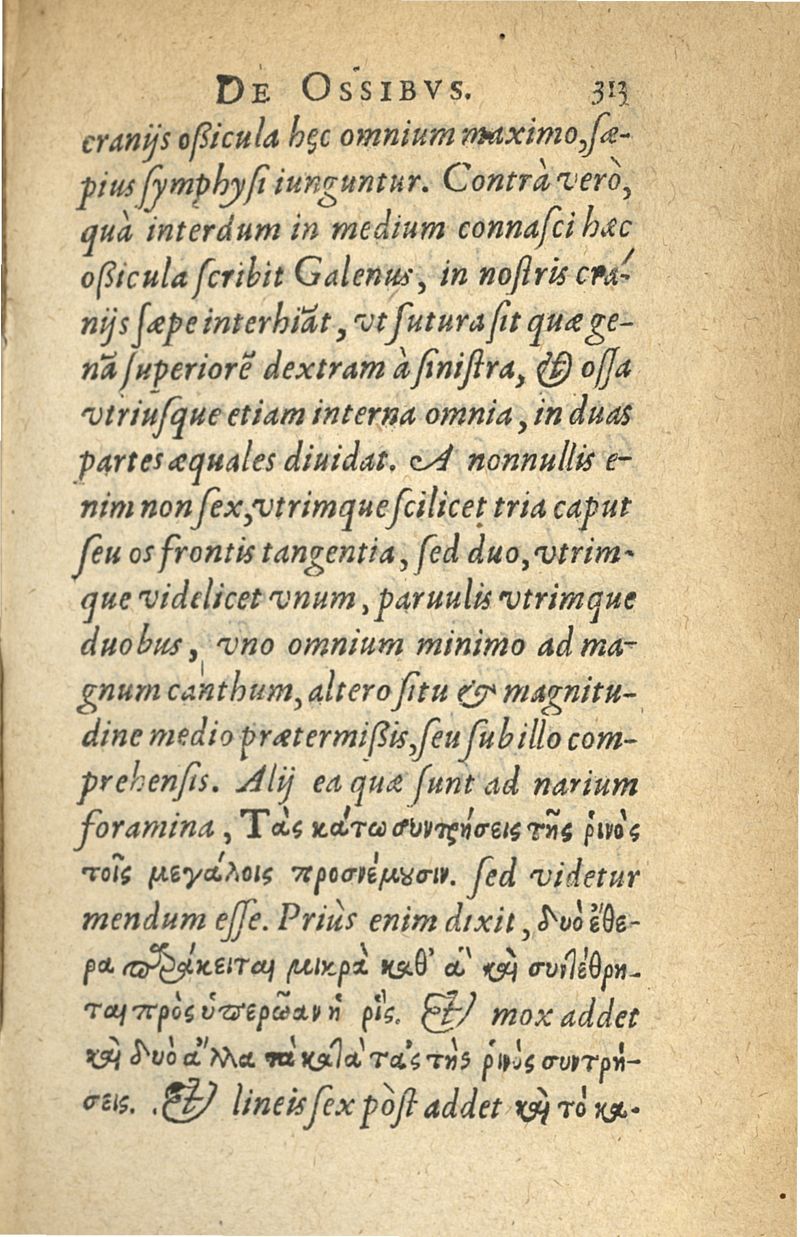 DE OSSIBVS. 313
cranijs oßicula hęc omnium maximo, sæ-
pius symphysi iunguntur. Contrà verò,
quà interdum in medium connasci hæc
oßicula scribit Galenus, in nostris crá-
nijs sæpe interhiãt, vt sutura sit quæ ge-
nã superiorẽ dextram à sinistra, & ossa
vtriusque etiam interna omnia, in duas
partes æquales diuidat. A nonnullis e-
nim non sex, vtrimque scilicet tria caput
seu os frontis tangentia, sed duo, vtrim-
que videlicet vnum, paruulis vtrimque
duobus, vno omnium minimo ad ma-
gnum canthum, altero situ & magnitu-
dine medio prætermißis, seu sub illo com-
prehensis. Alij ea quæ sunt ad narium
foramina, Τὰς κάτω συντρήσεις τῆς ῥινὸς
τοῖς μεγάλοις προσνέμουσιν. sed videtur
mendum esse. Priùs enim dixit, δυὸ ἔθε-
ρα παράκειται μικρὰ καθ' ἃ καὶ συντέθρη-
ται πρὸς ὑπερῶαν ἡ ρίς. & mox addet
καὶ δυὸ ἄλλα τὰ κατὰ τὰς τῆς ῥινὸς συντρή-
σεις. & lineis sex pòst addet καὶ τὸ κα-